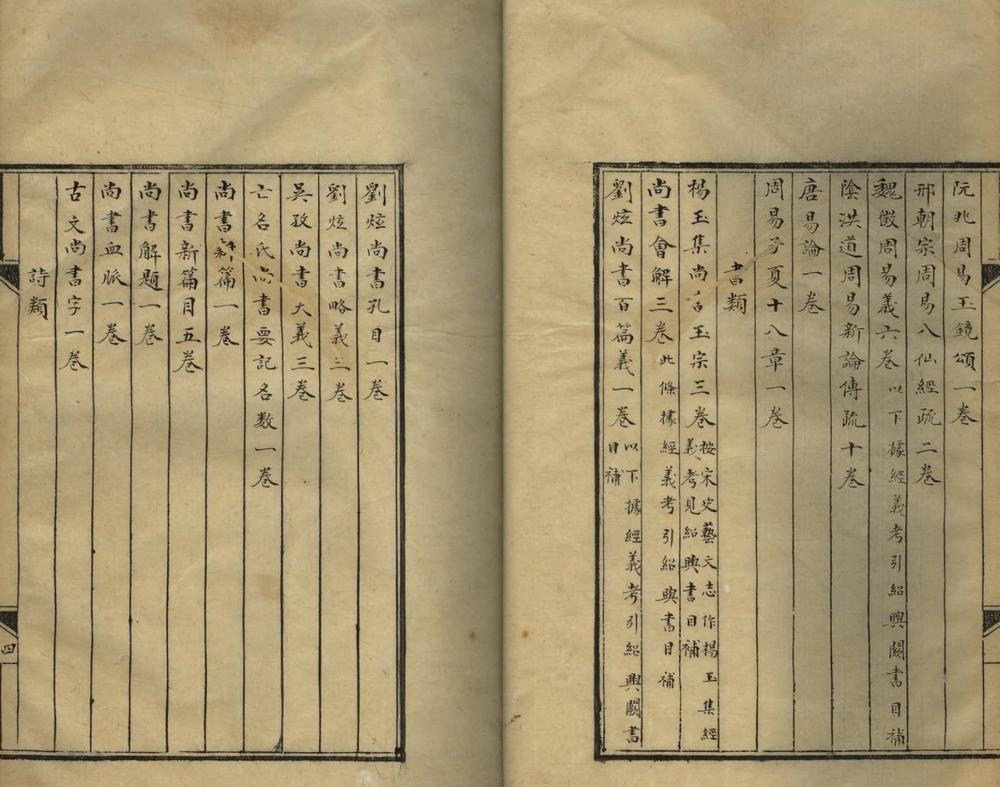 阮兆周易玉鏡頌一卷
邢朝宗周易八仙經疏二卷
魏徵周易義六卷以下據經義考引紹興闕書目補
陰洪道周易新論傳疏十卷
唐易論一卷
周易子夏十八章一卷
書類
楊玉集尚書玉宗三卷按宋史藝文志作楊玉集經義考見紹興書目補
尚書會解三卷此條據經義考引紹興書目補
劉炫尚書百篇義一卷以下據經義考引紹興闕書目補
劉炫尚書孔目一卷
劉炫尚書略義三卷
吳孜尚書大義三卷
亡名氏尚書要記名數一卷
尚書新篇一卷
尚書新篇目五卷
尚書解題一卷
尚書血脈一卷
古文尚書字一卷
詩類
四